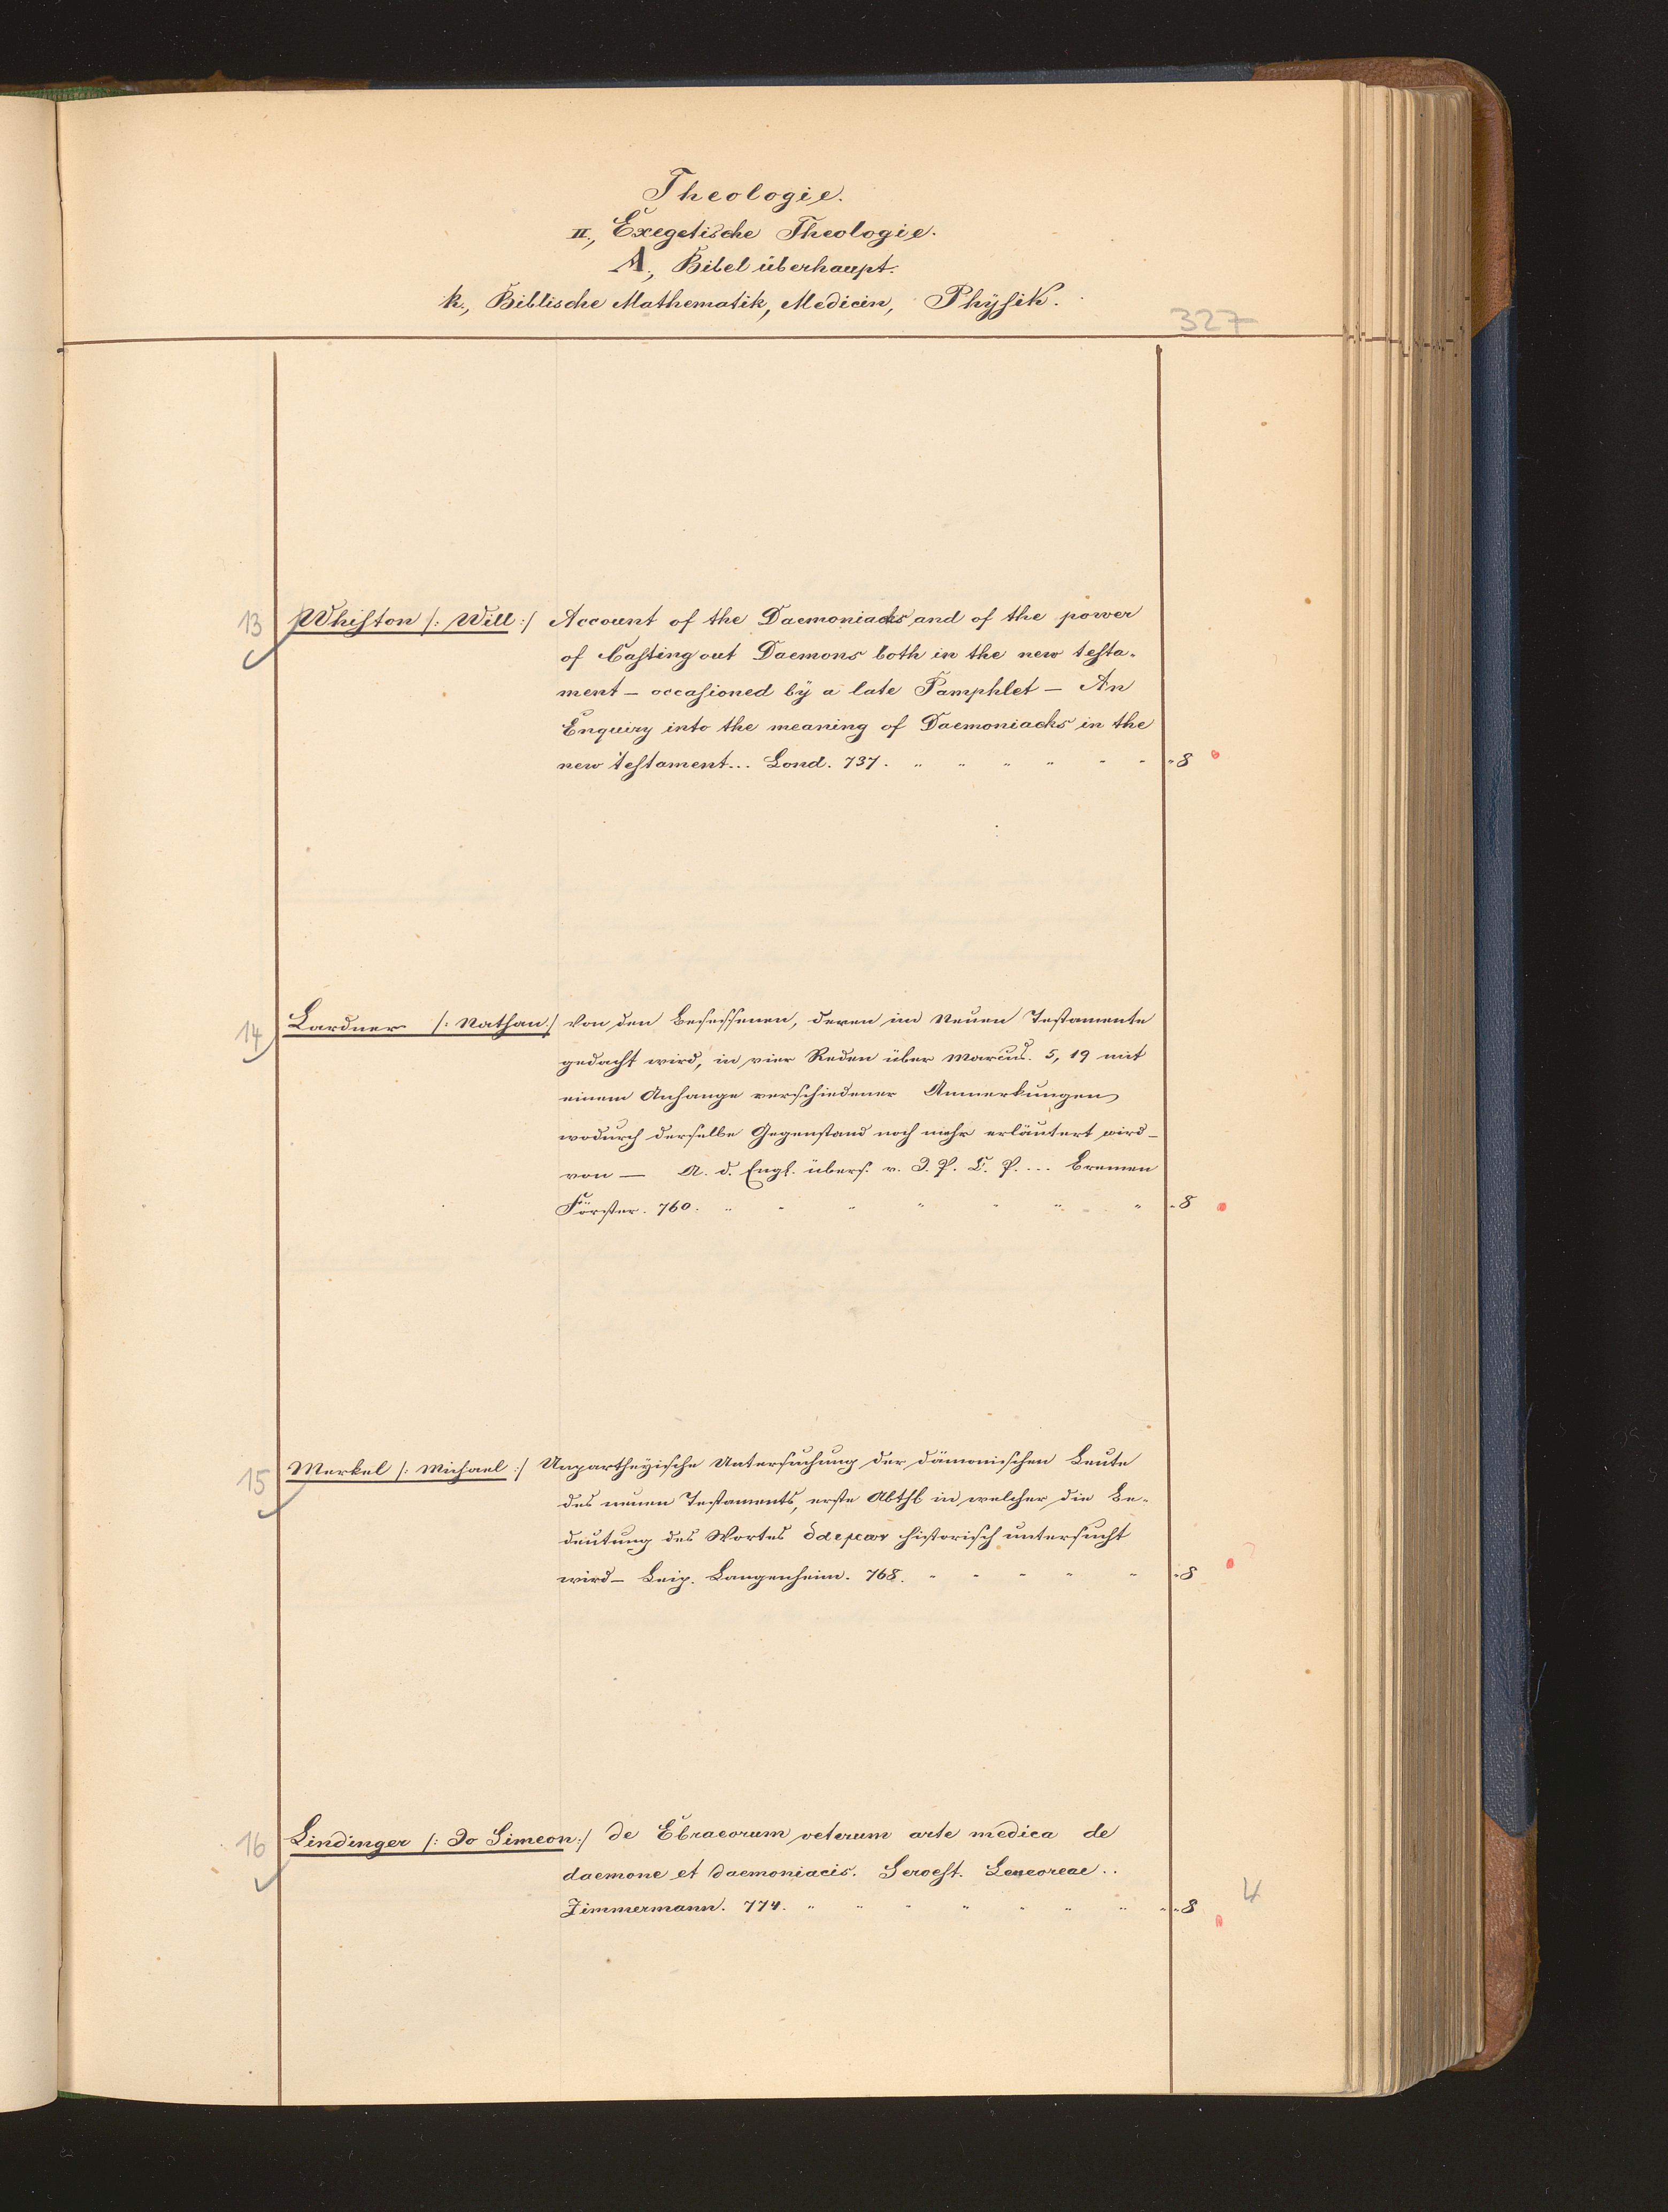 Theologie.
II., Exegetische Theologie.
A., Bibel überhaupt.
k., Biblische Mathematik, Medicin, Physik.
327
13 Whiston /: Will :/ Account of the Daemoniacks and of the power
of Casting out Daemons both in the new testa-
ment — occasioned by a late Pamphlet — An
Enquiry into the meaning of Daemoniacks in the
new testament... Lond. 737. " " " " " " " 8
14 Lardner /: Nathan :/ Von den Besessenen, deren im Neuen Testamente
gedacht wird, in vier Reden über Marcus. 5, 19 mit
einem Anhange verschiedener Anmerkungen,
wodurch derselbe Gegenstand noch mehr erläutert wird —
von — A. d. Engl. übers. v. J. P. C. P. ... Bremen
Förster. 760. " " " " " " " " 8
15 Merkel /: Michael :/ Unpartheyische Untersuchung der dämonischen Leute
des neuen Testaments, erste Abthl in welcher die Be-
deutung des Wortes historisch untersucht
wird — Leip. Langenheim. 768. " " " " " " 8
16 Lindinger /: Jo Simeon :/ de Ebraeorum veterum arte medica de
daemone et daemoniacis. Servest. Leucoreae..
Zimmermann. 774. " " " " " " " " " 8
4